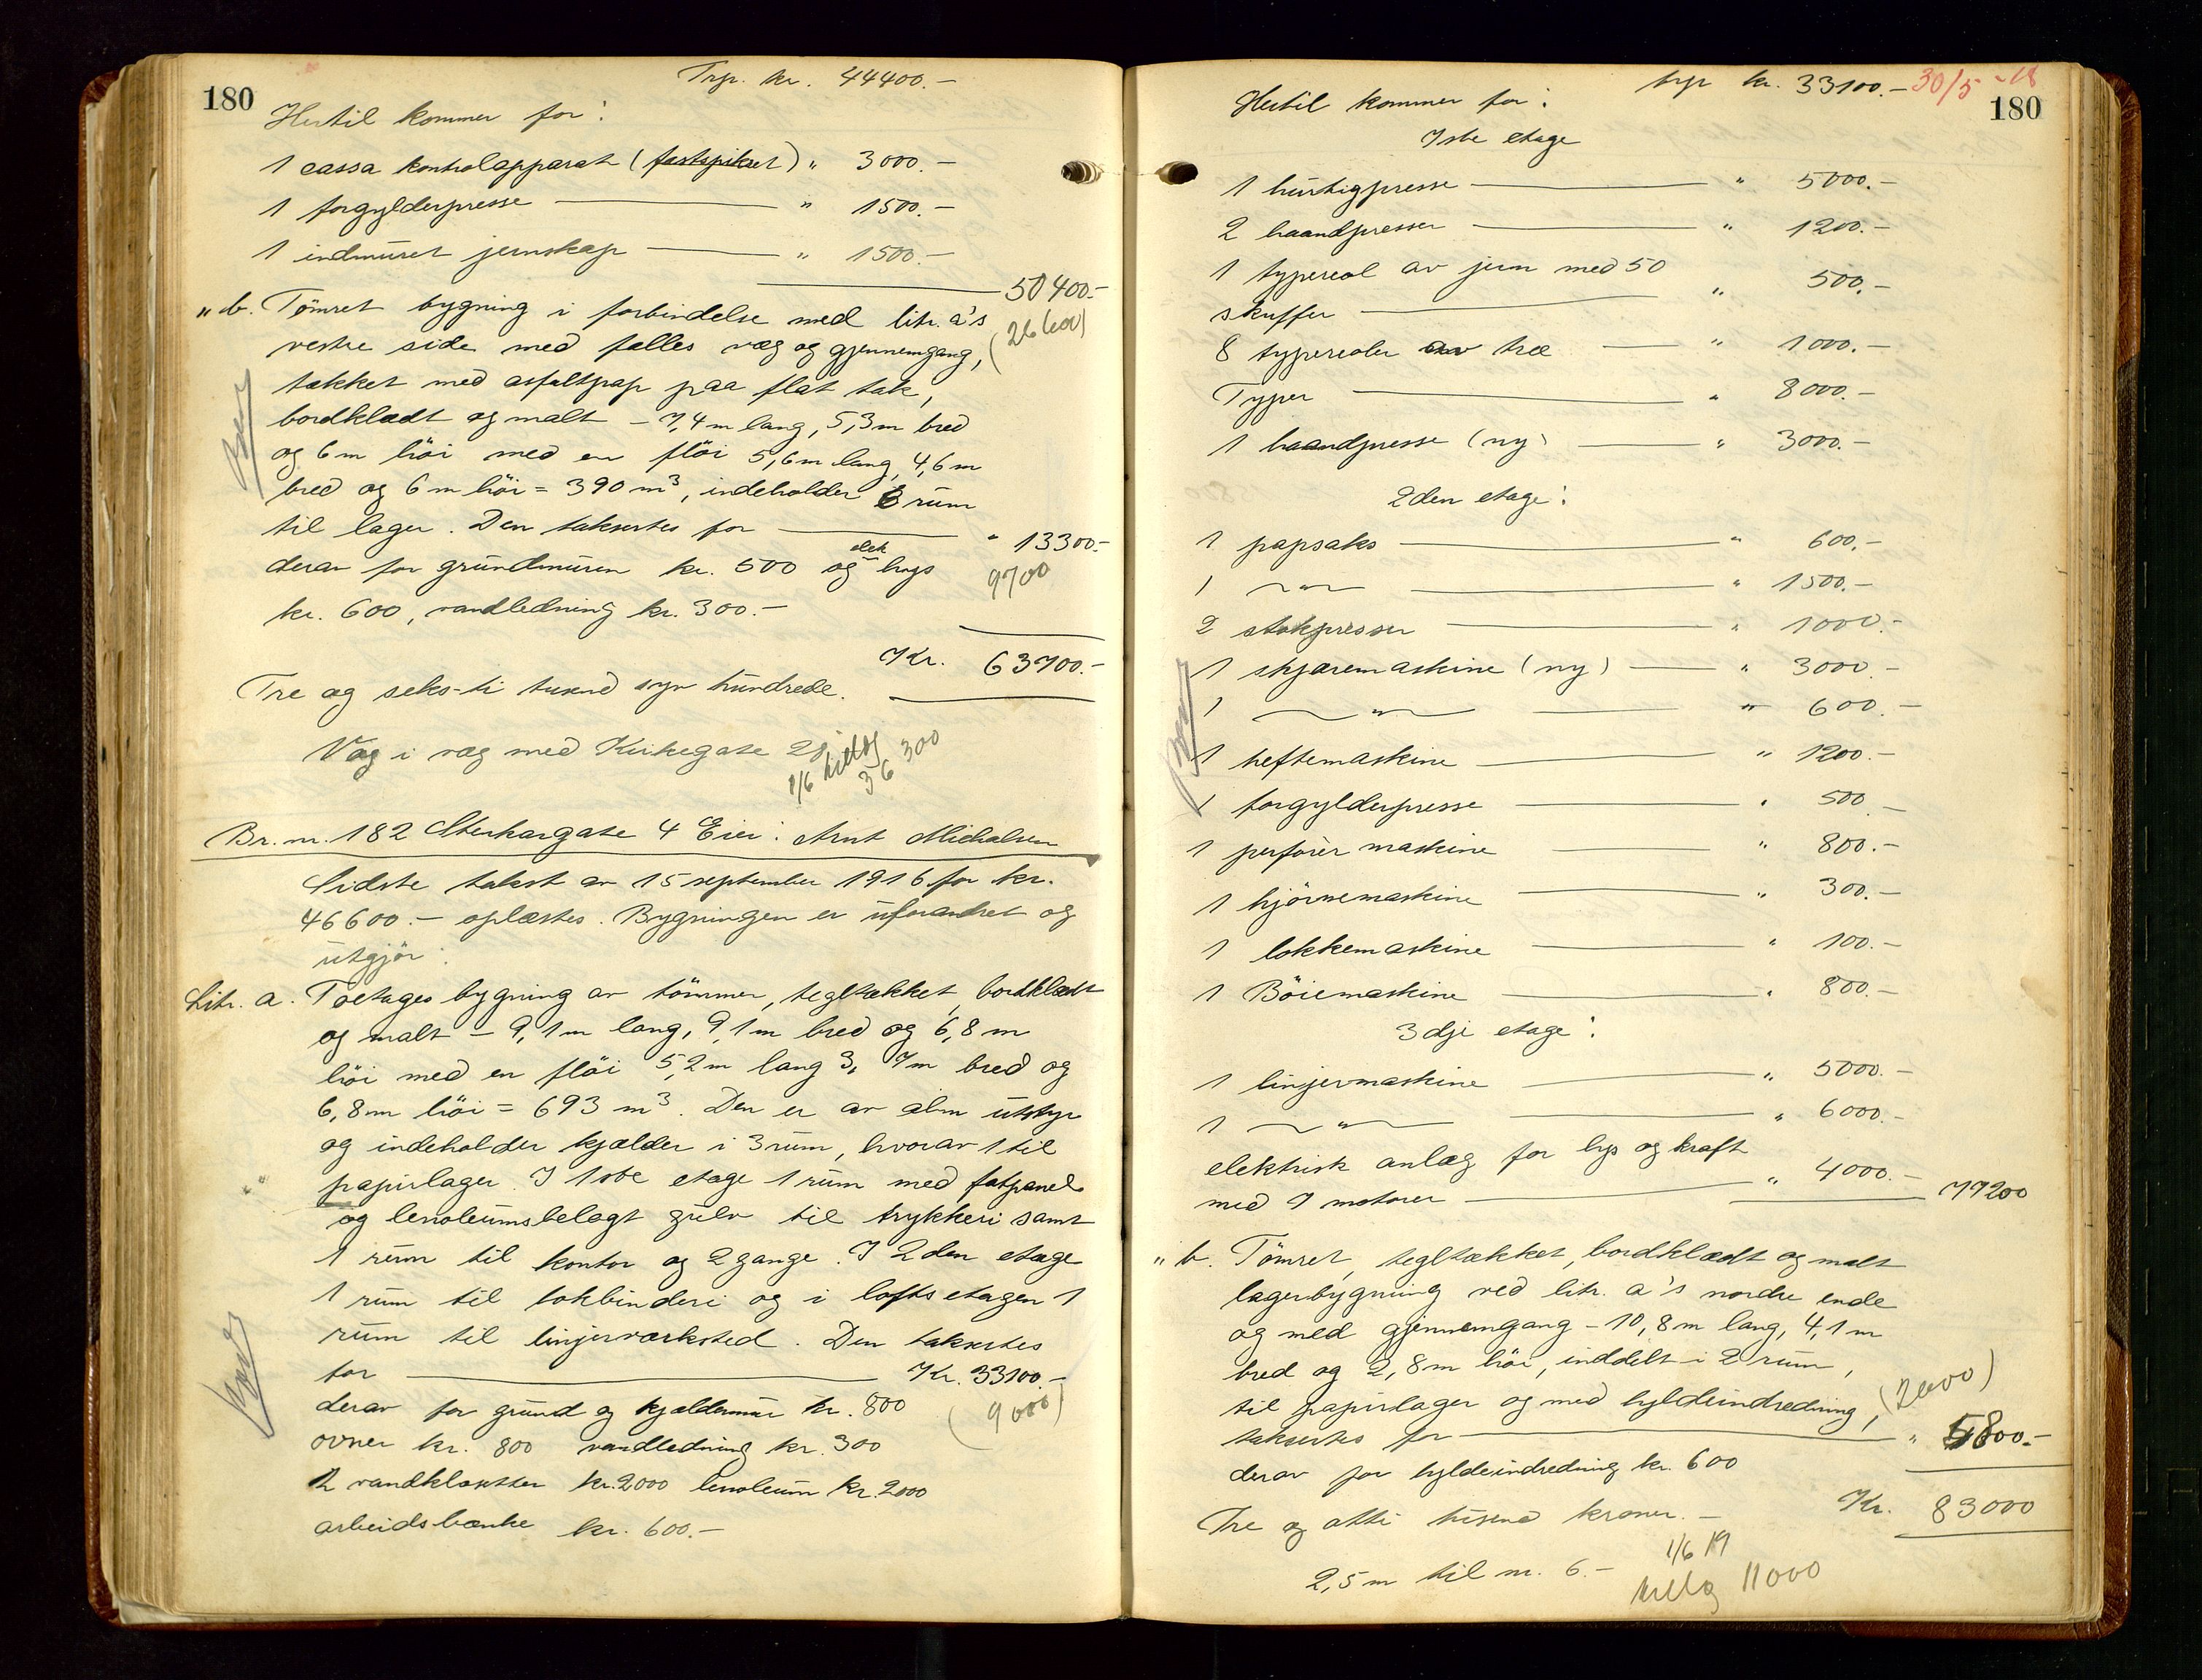 180
Trp. kr. 44400.-
Hertil kommer for:
1 cassa kontrolapparat (fastspikret) " 3000.-
1 forgylderpresse " 1500.-
1 indmuret jernskap " 1500.-
50400.-
" b. Tømret bygning i forbindelse med litr. a's
(26600)
vestre side med fælles væg og gjennemgang,
tækket med asfaltpap paa flat tak,
bordklædt og malt - 7,4 m lang, 5,3 m bred
og 6 m höi med en flöi 5,6 m lang, 4,6 m
bred og 6 m höi = 390 m³, indeholder 3 rum
til lager. Den taksertes for " 13300.-
derav for grundmuren kr. 500 og elek lys
9700
kr. 600, vandledning kr. 300.-
Kr. 63700.-
Tre og seks-ti tusend syv hundrede.
Væg i væg med Kirkegate 28
1/6 tillæg
36 300
Br. nr. 182 Sterkargate 4 Eier: Arnt Michalsen
Sidste takst av 15 september 1916 for kr.
46600.- oplæstes. Bygningen er uforandret og
utgjör:
Litr. a. Toetages bygning av tömmer, tegltækket, bordklædt
og malt - 9,1 m lang, 9,1 m bred og 6,8 m
höi med en flöi 5,2 m lang 3,7 m bred og
6,8 m höi = 693 m³. Den er av alm utstyr
og indeholder kjælder i 3 rum, hvorav 1 til
papirlager. I 1ste etage 1 rum med fatpanel
og lenoleumsbelagt gulv til trykkeri samt
1 rum til kontor og 2 gange. I 2den etage
1 rum til bokbinderi og i loftsetagen 1
rum til linjerværksted. Den taksertes
for Kr. 33100.-
derav for grund og kjældermur kr. 800
(9000)
ovner kr. 800 vandledning kr. 300
2 vandklosetter kr. 2000 lenoleum kr. 2000
arbeidsbænke kr. 600.-
trp kr. 33100.-
30/5 -18
180
Hertil kommer for:
1ste etage
1 hurtigpresse " 5000.-
2 haandpresser " 1200.-
1 typereol av jern med 50
skuffer " 500.-
8 typereoler av træ " 1000.-
Typer " 8000.-
1 haandpresse (ny) " 3000.-
2den etage:
1 papsaks " 600.-
1 -"- " 1500.-
2 stokpresser " 1000.-
1 skjæremaskine (ny) " 3000.-
1 -"- " 600.-
1 heftemaskine " 1200.-
1 forgylderpresse " 500.-
1 perforer maskine " 800.-
1 hjörnemaskine " 300.-
1 lokkemaskine " 100.-
1 Böiemaskine " 800.-
3dje etage:
1 linjermaskine " 5000.-
1 -"- " 6000.-
elektrisk anlæg for lys og kraft
med 7 motorer " 4000.-
77200
" b. Tömret, tegltækket, bordklædt og malt
lagerbygning ved litr. a's nordre ende
og med gjennemgang - 10,8 m lang, 4,1 m
bred og 2,8 m höi, inddelt i 2 rum,
til papirlager og med hyldeindredning,
(2000)
taksertes for " 5800.-
derav for hyldeindredning kr. 600
Kr. 83000
Tre og otti tusend kroner.-
2,5 m til nr. 6.-
1/6 19
tillæg 11000